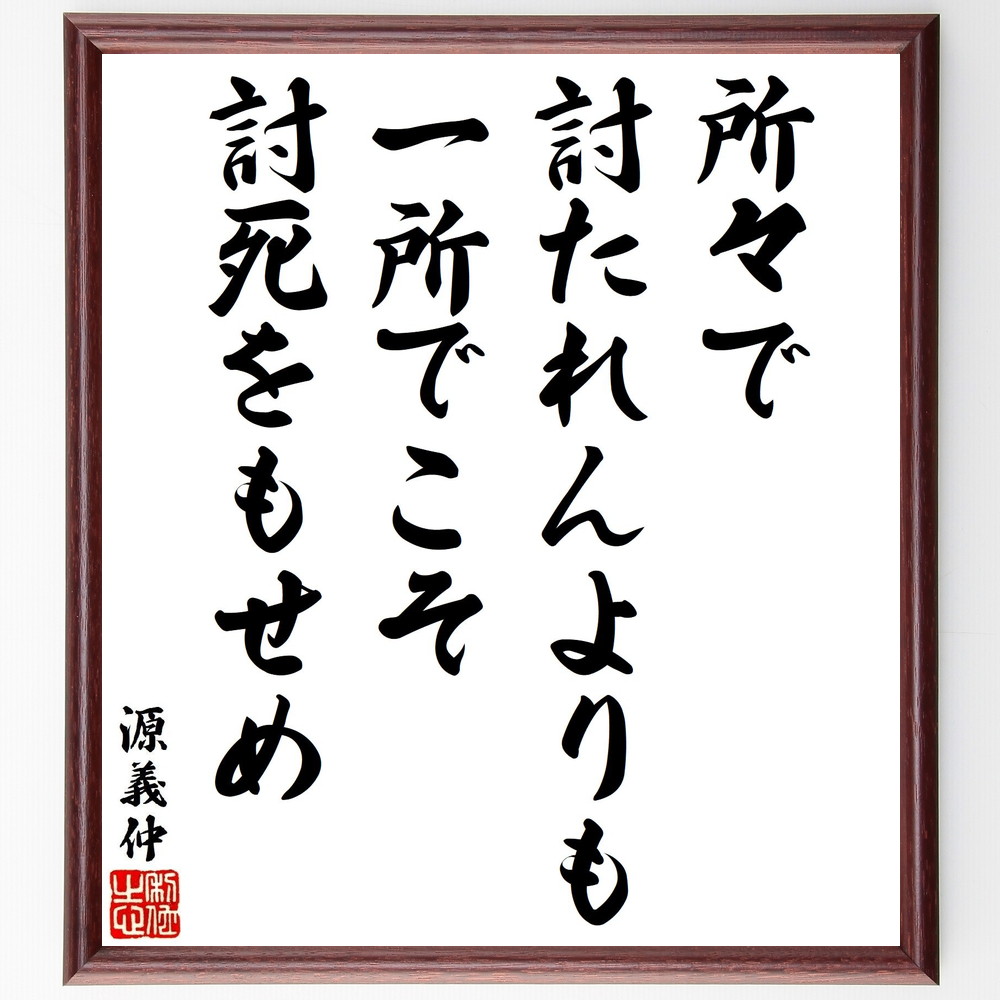 所々で
討たれんよりも
一所でこそ
討死をもせめ
源義仲